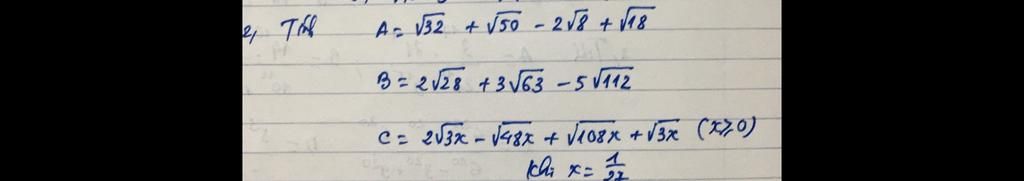 2, Tính A = √32 + √50 - 2√8 + √18
B = 2√28 + 3√63 - 5√112
C = 2√3x - √48x + √108x + √3x (x ≥ 0)
khi x = 1/27